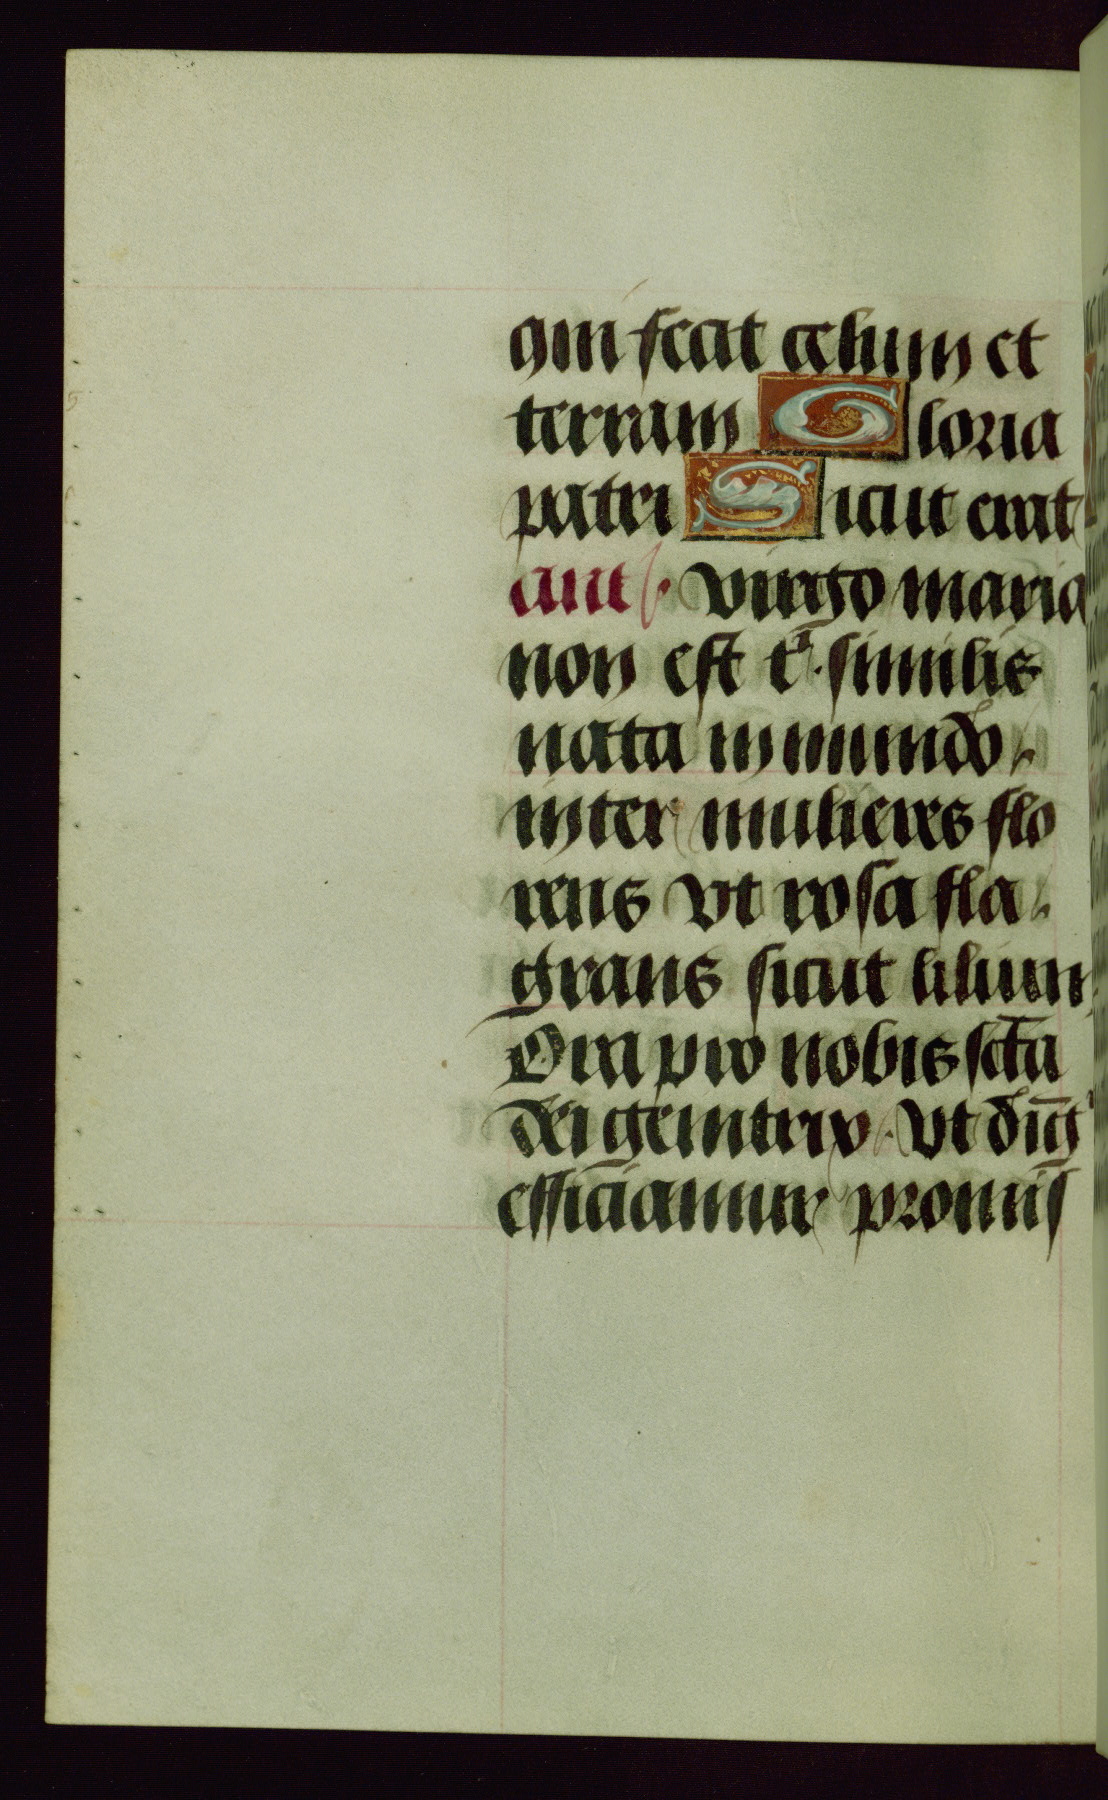 qui fecit celum et
terram Gloria
patri Sicut erat
ant. virgo maria
non est t͛ similis
nata in mundo
inter mulieres flo
rens vt rosa fla
grans sicut lilium
Ora pro nobis sc̄ta
dei genitrix. Vt diḡ
efficiamur promis